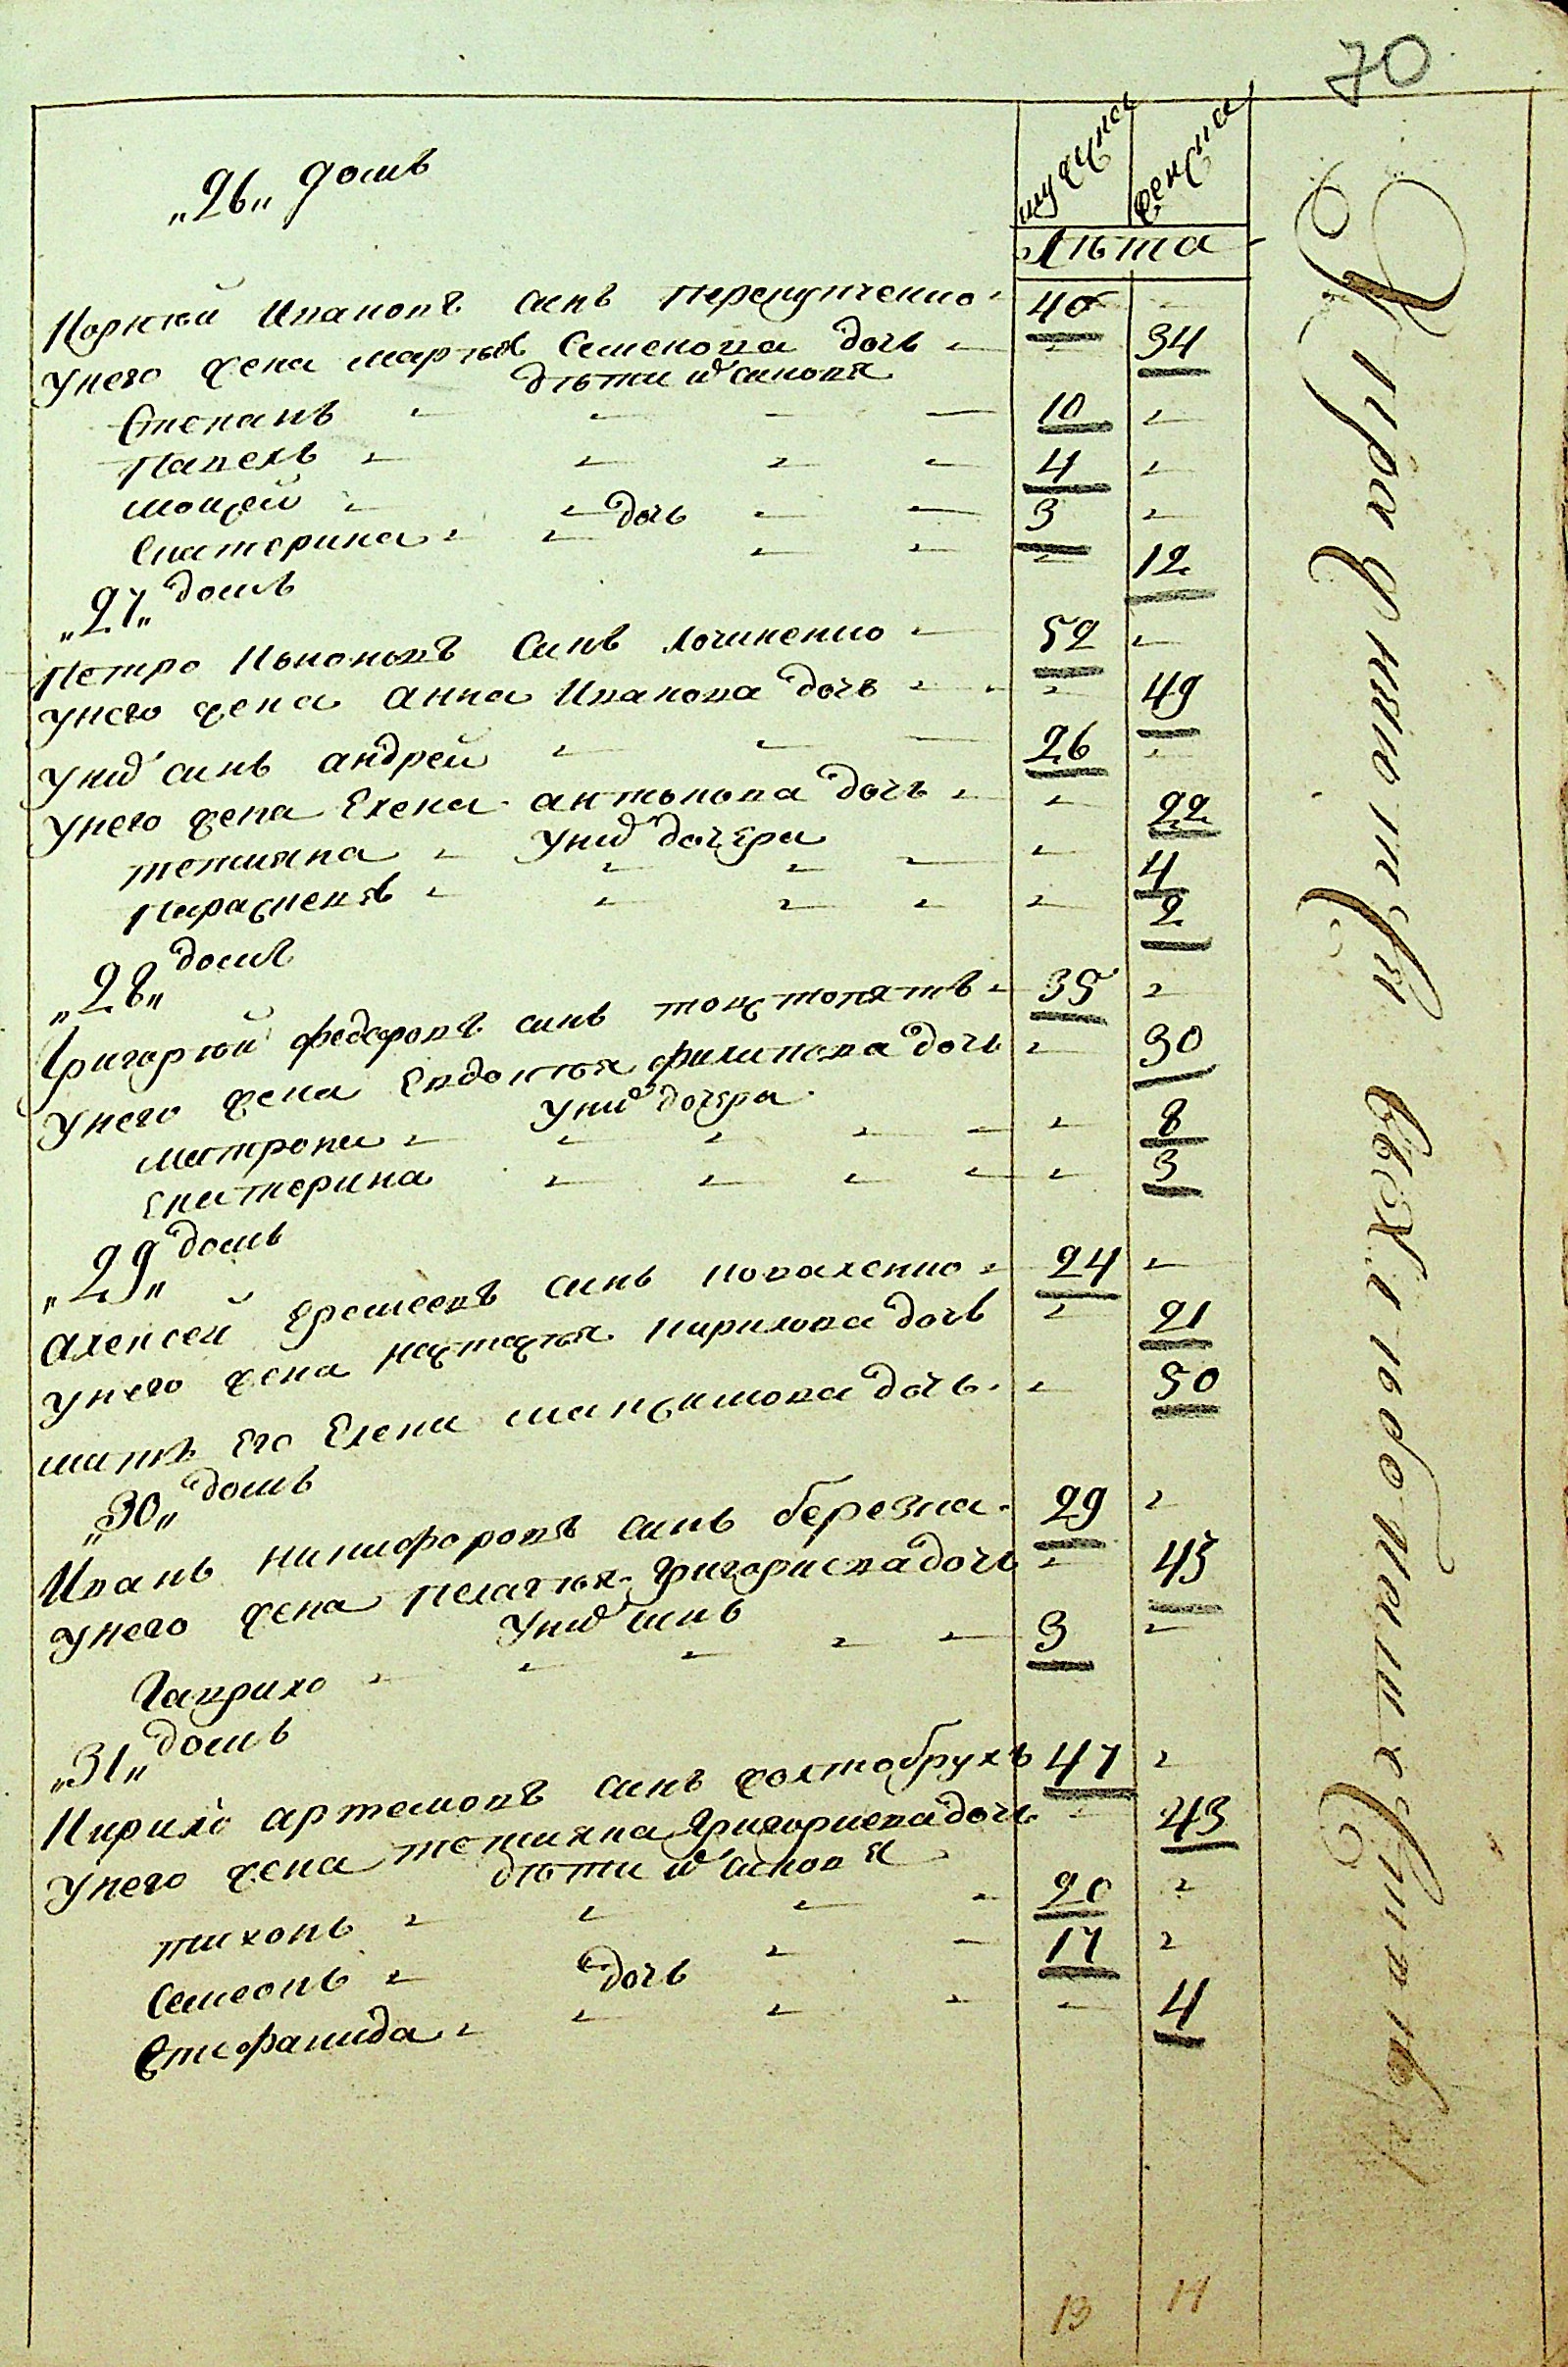 70
мужеска женска
лѣта
„26„ домъ
Корнѣй Ивановъ синъ Перекупченко 40
Унего жена марѳѣя Семенова дочь 34
дѣти ихъ синовя
Степанъ 10
Павелъ 4
мойсей 3
дочь
Екатерина 12
„27„ домъ
Петро Кононовъ Синъ Лочиненко 52
Унего жена анна Иванова дочь 49
Унихъ синъ андрей 26
Унего жена Елена антонова дочь 22
Унихъ дочера
тетияна 4
Парасκевѣя 2
„28„ домъ
Григорѣй федоровъ синъ 35
Унего жена Евдокѣя филипова дочь 30
Унихъ дочера
матрона 8
Екатерина 3
„29„ домъ
алексей Еремеевъ синъ коваленко 24
Унего жена настасѣя кирилова дочь 21
мати Его Елена максимова дочь 50
„30„ домъ
Иванъ никифоровъ синъ березка 29
Унего жена Пелагѣя Григориева дочь 45
Унихъ синъ
Гаврило 3
„31„ домъ
Кирило артемовъ синъ жолтобрухъ 47
Унего жена тетияна Григориева дочь 43
дѣти ихъ синовя
тихонъ 20
Семеонъ 17
дочь
Стефанида 4
13 14